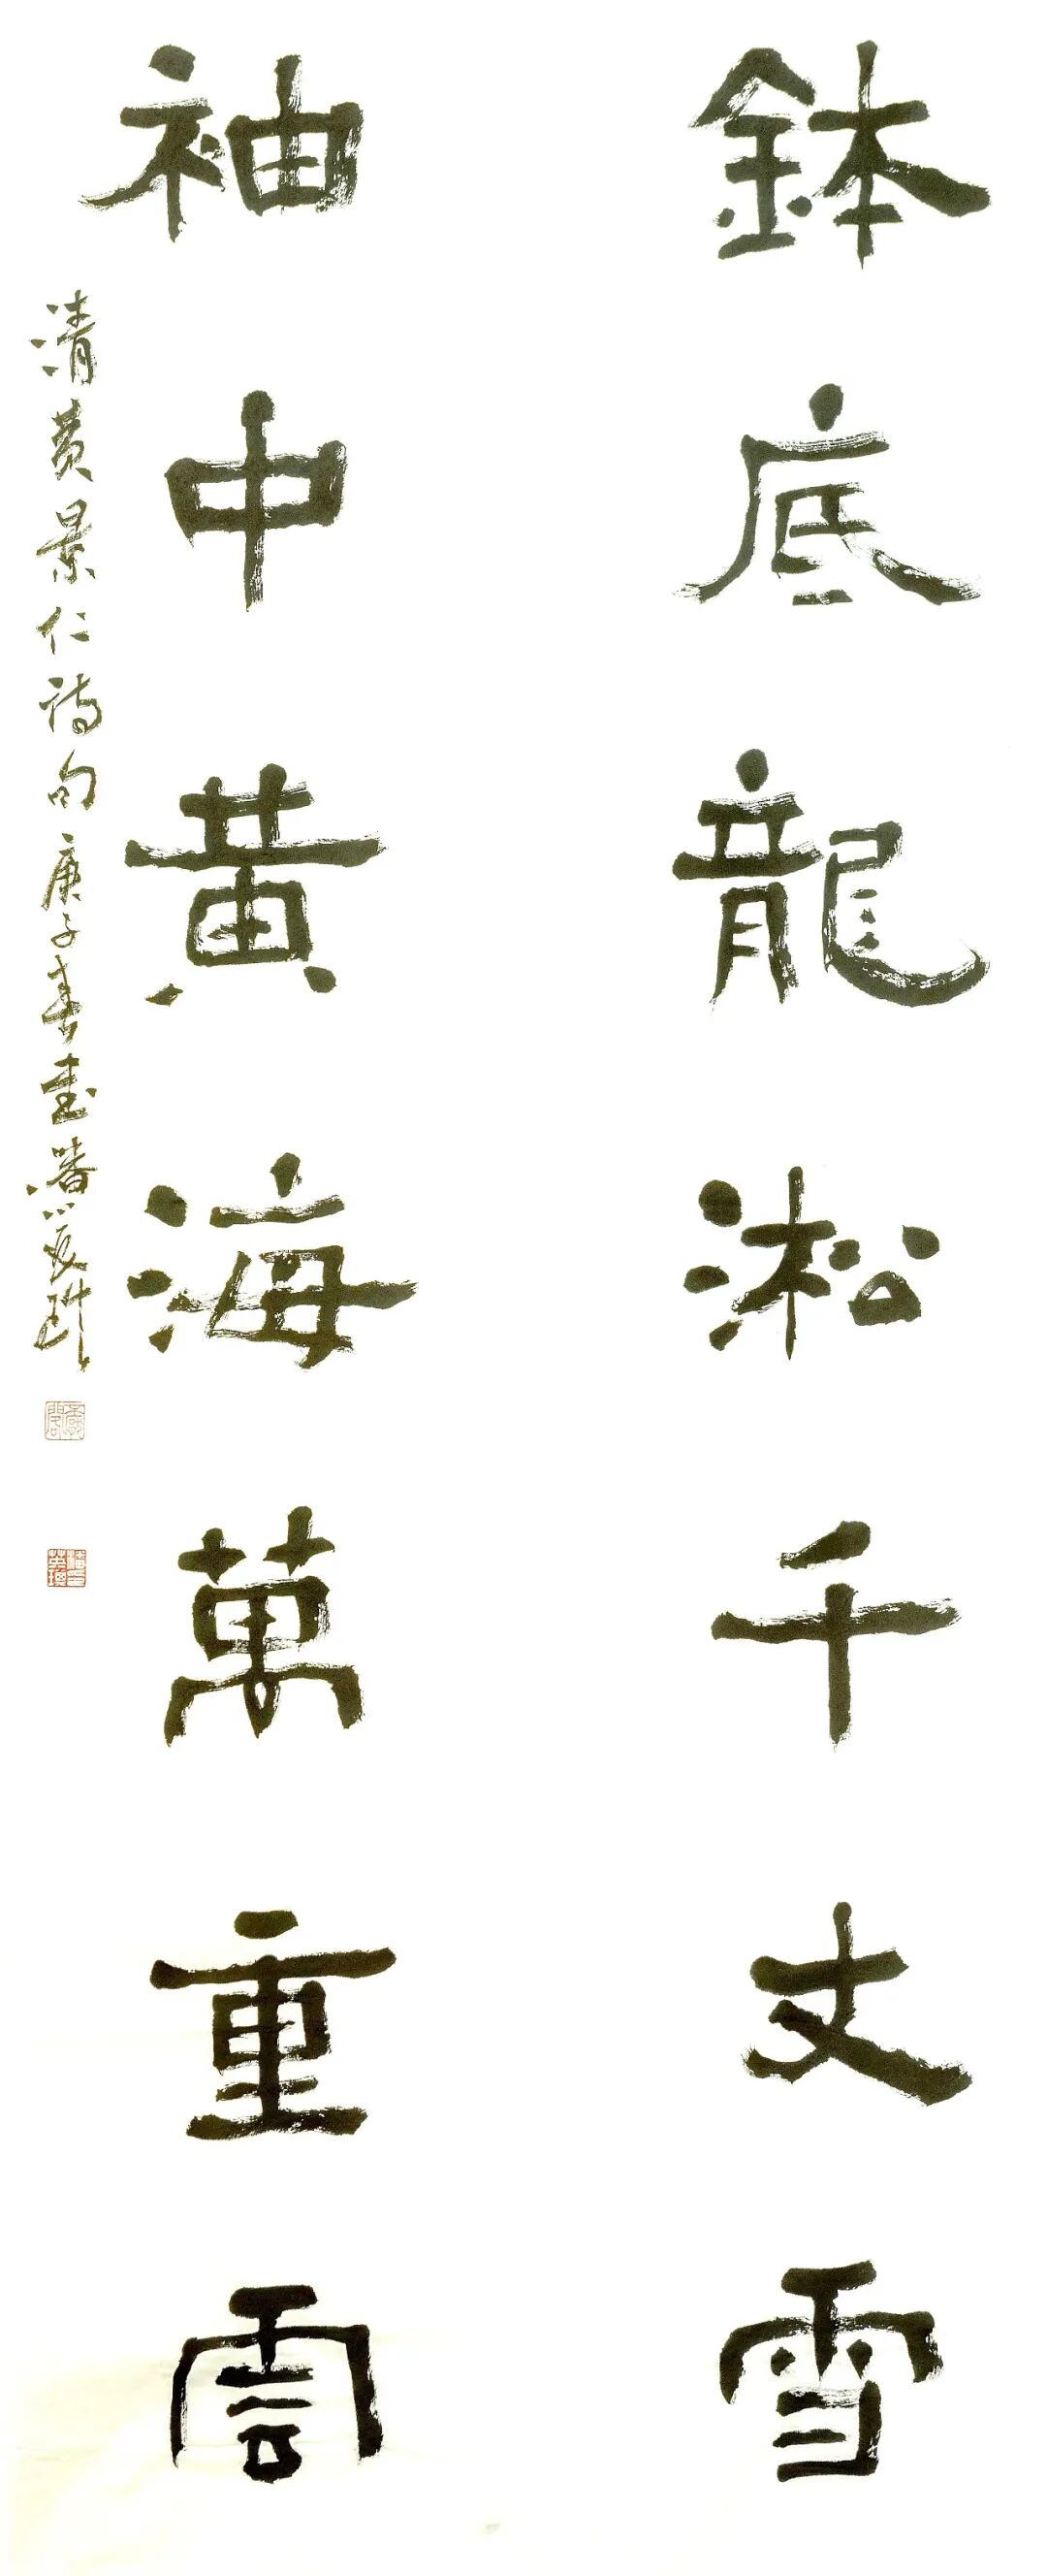 鉢底龍淞千丈雪
袖中黄海萬重雲
清黄景仁詩句庚子春書潘英琪